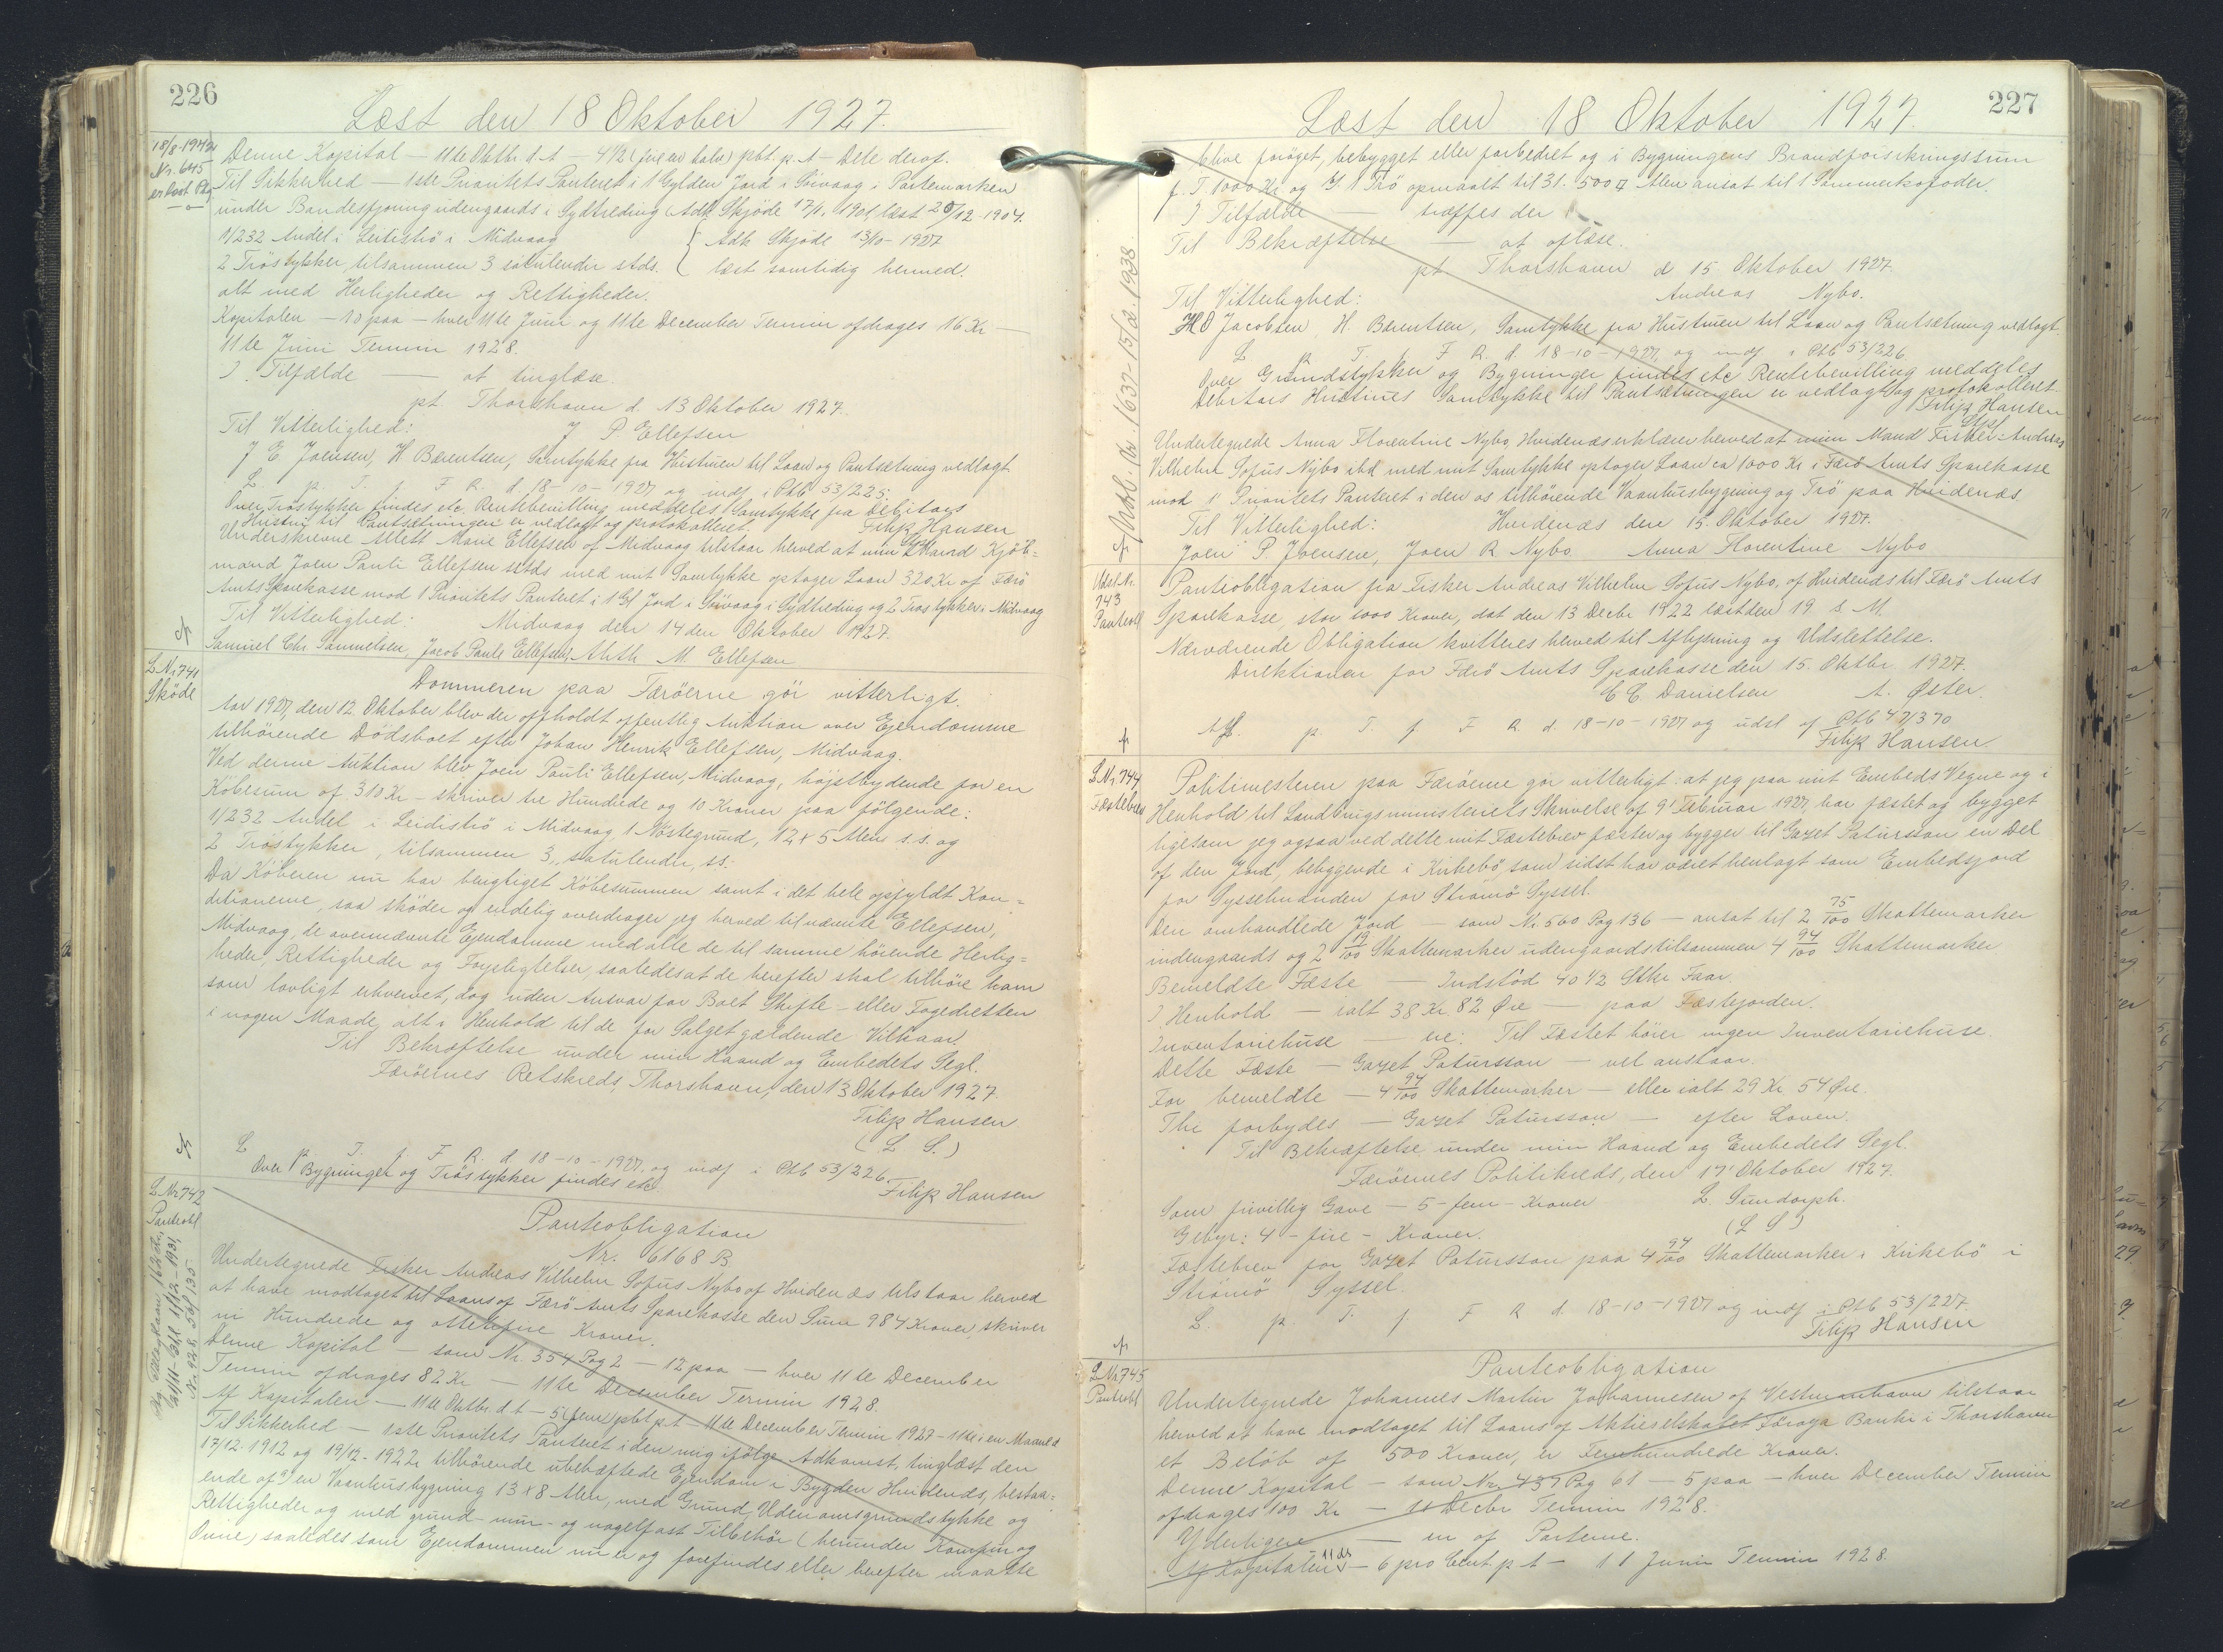 226
Læst den 18 Oktober 1927.
18/8-1942
Nr. 645
er løst Pkg
Denne Kapital — 11te Oktb. d.A — 4½ (fire en halv) pCt. p.A — Dele deraf.
Til Sikkerhed — 1ste Prioritets Panteret i 1 Gylden Jord i Sörvaag i Partemarken
under Bandesfjoung udengaards i Sydtreding Adk. Skjöde 17/11 1901, læst 20/12-1904.
1/232 Andel i Leitiströ i Midvaag { Adk Skjöde 13/10-1927
2 Tröstykker, tilsammen 3 satulender stds. { læst samtidig hermed.
alt med Herligheder og Rettigheder.
Kapitalen — 10 paa — hver 11te Juni og 11te December Termin afdrages 16 Kr —
11te Juni Termin 1928.
I Tilfælde — at tinglæse.
pt Thorshavn d. 13 Oktober 1927.
Til Vitterlighed: J P. Ellefsen
J E Joensen, H Bærentsen, Samtykke fra Hustruen til Laan og Pantsætning vedlagt.
L. p. T. f. F R. d. 18-10-1927 og indf i Ptb 53/225.
Over Tröstykker findes etc. Rentebevilling meddeles. Samtykke fra Debitors
Hustru til Pantsætningen er vedlagt og protokolleret. Filip Hansen
Underskrevne Allett Marie Ellefsen af Midvaag tilstaar herved at min Mand Kjöb=
mand Joen Pauli Ellefsen sstds med mit Samtykke optager Laan 320 Kr af Færö
Amts Sparekasse mod 1 Prioritets Panteret i 1 Gl Jord i Sörvaag i Sydtreding og 2 Tröstykker i Midvaag
Til Vitterlighed: Midvaag den 14 den Oktober 1927.
Samuel Chr Samuelsen, Jacob Pauli Ellefsen, Aleth M. Ellefsen
L Nr 741
Sköde
Dommeren paa Færöerne gör vitterligt.
Aar 1927, den 12. Oktober blev der afholdt offentlig Auktion over Ejendomme
tilhörende Dödsboet efter Johan Henrik Ellefsen, Midvaag.
Ved denne Auktion blev Joen Pauli Ellefsen, Midvaag, höjstbydende for en
Köbesum af 310 Kr — skriver tre Hundrede og 10 Kroner paa fölgende:
1/232 Andel i Leidiströ i Midvaag, 1 Nöstegrund, 12 x 5 Alen s.s. og
2 Tröstykker, tilsammen 3 satulender, ss.
Da Köberen nu har berigtiget Köbesummen samt i det hele opfyldt Kon=
ditionerne, saa sköder og endelig overdrager jeg herved til nævnte Ellefsen,
Midvaag, de ovennævnte Ejendomme med alle de til samme hörende Herlig=
heder, Rettigheder og Forpligtelser, saaledes at de herefter skal tilhöre ham
som lovligt erhvervet, dog uden Ansvar for Boet Skifte- eller Fogedretten
i nogen Maade, alt i Henhold til de for Salget gældende Vilkaar.
Til Bekræftelse under min Haand og Embedets Segl.
Færöernes Retskreds, Thorshavn, den 13 Oktober 1927.
Filip Hansen
(L S.)
L p. T. f. F R. d. 18-10-1927, og indf i Ptb 53/226.
Over Bygninger og Tröstykker findes etc. Filip Hansen
L Nr 742
Panteobl
Nr. 928. 56/135
Panteobligation
Nr. 6168 B
Undertegnede Fisker Andreas Vilhelm Sofus Nybo af Hvidenæs tilstaar herved
at have modtaget til Laans af Færö Amts Sparekasse den Sum 984 Kroner, skriver
ni Hundrede og ottetifire Kroner.
Denne Kapital — som Nr. 354 Pag 2 — 12 paa — hver 11te December
Termin afdrages 82 Kr — 11te December Termin 1928.
Af Kapitalen — 11te Oktbr. d.A — 5 (fem) pCt p.A — 11te December Termin 1927 — 11te i en Maaned
Til Sikkerhed — 1ste Prioritets Panteret i den mig ifölge Adkomst, tinglæst den
17/12-1912 og 19/12-1922 tilhörende ubehæftede Ejendom i Bygden Hvidenæs, bestaa=
ende af: en Vaanhusbygning 13 x 8 Alen, med Grund, Udenomsgrundstykke og
Rettigheder og med grund- mur- og nagelfast Tilbehör (herunder Komfur og
Ovne) saaledes som Ejendommen nu er og forefindes eller herefter maatte
227
Læst den 18 Oktober 1927.
blive foröget, bebygget eller forbedret og i Bygningens Brandforsikringssum
f. T. 1000 Kr og 1 Trö opmaalt til 31.500 □ Alen ansat til 1 Sommerkofoder.
I Tilfælde — træffes der
Til Bekræftelse — at aflæse.
pt Thorshavn d 15 Oktober 1927.
Til Vitterlighed: Andreas Nybo.
H O Jacobsen, H. Bærentsen, Samtykke fra Hustruen til Laan og Pantsætning vedlagt.
L p. T. f. F R. d. 18-10-1927, og indf i Ptb 53/226
Over Grundstykker og Bygninger findes etc Rentebevilling meddeles
Debitors Hustrues Samtykke til Pantsætningen er vedlagt og protokolleret.
Filip Hansen
Undertegnede Anna Florentine Nybo, Hvidenæs erklærer herved at min Mand Fisker Andreas
Vilhelm Sofus Nybo ibd med mit Samtykke optager Laan ca 1000 Kr i Færö Amts Sparekasse
mod 1' Prioritets Panteret i den os tilhörende Vaanhusbygning og Trö paa Hvidenæs
Til Vitterlighed: Hvidenæs den 15. Oktober 1927.
Joen P. Joensen, Joen R Nybo Anna Florentine Nybo
Udsl. N.
743
Panteobl
Panteobligation fra Fisker Andreas Vilhelm Sofus Nybo, af Hvidenæs til Færö Amts
Sparekasse, stor 1000 Kroner, dat den 13 Decbr 1922 læst den 19 s. M.
Nærværende Obligation kvitteres herved til Aflysning og Udslettelse.
Direktionen for Færö Amts Sparekasse den 15. Oktbr. 1927.
C C. Danielsen A. Øster.
Afl. p. T. f F R d. 18-10-1927 og udsl af Ptb 47/370
Filip Hansen.
L Nr 744
Fæstebrev
Politimesteren paa Færöerne gör vitterligt: at jeg paa mit Embeds Vegne og i
Henhold til Landbrugsministeriets Skrivelse af 9' Februar 1927, har fæstet og bygget
ligesom jeg ogsaa ved dette mit Fæstebrev fæster og bygger til Gazet Patursson en Del
af den Jord, beliggende i Kirkebö, som sidst har været henlagt som Embedsjord
for Sysselmanden for Strömö Syssel.
Den omhandlede Jord — som Nr 560 Pag 136 — ansat til 2 75/100 Skattemarker
indengaards og 2 19/100 Skattemarker udengaards tilsammen 4 94/100 Skattemarker
Bemeldte Fæste — Indstöd 40 1/2 Stkr Faar.
I Henhold — ialt 38 Kr. 82 Øre — paa Fæstejorden.
Inventariehuse — ere: Til Fæstet hörer ingen Inventariehuse.
Dette Fæste — Gazet Patursson — vel anstaar.
For bemeldte — 4 94/100 Skattemarker — eller ialt 29 Kr. 54 Øre.
Thi forbydes — Gazet Patursson — efter Loven.
Til Bekræftelse under min Haand og Embedets Segl.
Færöernes Politikreds, den 17' Oktober 1927.
Som frivillig Gave — 5 - fem - Kroner L Sundorph.
Gebyr: 4 - fire - Kroner. (L S)
Fæstebrev for Gazet Patursson paa 4 94/100 Skattemarker i Kirkebö i
Strömö Syssel.
L. p. T. f F R d. 18-10-1927 og indf i Ptb 53/227.
Filip Hansen
L Nr 745
Panteobl
Panteobligation
Undertegnede Johannes Martin Johannesen af Vestmanhavn tilstaar
herved at have modtaget til Laans af Aktieselskabet Föroya Banki i Thorshavn
et Belöb af 500 Kroner, er Femhundrede Kroner.
Denne Kapital — som Nr. 437 Pag 61 — 5 paa — hver December Termin
afdrages 100 Kr — 11 Decbr Termin 1928.
Yderligere — en af Parterne.
Af Kapitalen 11 ds — 6 pro Cent p.A — 11 Juni Termin 1928.